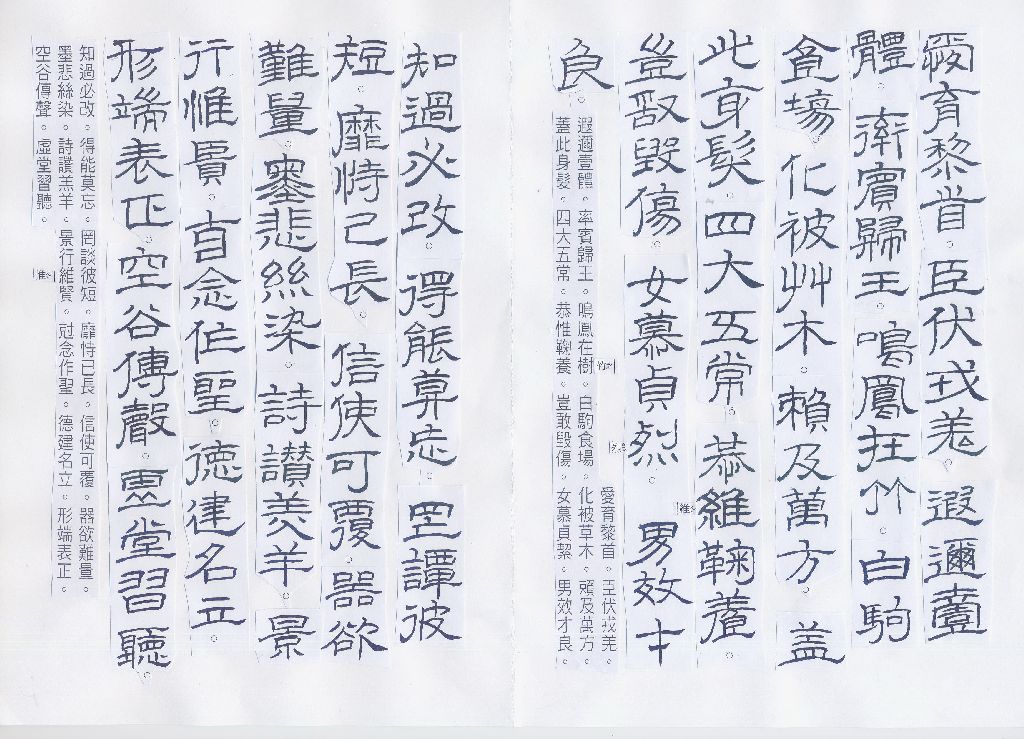 愛育黎首臣伏戎羌。遐邇壹
體。率賓歸王。鳴鳳在竹。白駒
食場。化被艸木。賴及萬方。蓋
此身髮。四大五常。恭維鞠養。
豈敢毀傷。女慕貞烈。男效才
良。
愛育黎首。臣伏戎羌。
遐邇壹體。率賓歸王。鳴鳳在樹。白駒食場。化被草木。賴及萬方。
蓋此身髮。四大五常。恭惟鞠養。豈敢毀傷。女慕貞絜。男效才良。
知過必改。得能莫忘。罔談彼
短。靡恃己長。信使可覆。器欲
難量。墨悲絲染。詩讚羔羊。景
行惟賢。克念作聖。德建名立。
形端表正。空谷傳聲。虛堂習聽。
知過必改。得能莫忘。罔談彼短。靡恃已長。信使可覆。器欲難量。
墨悲絲染。詩讚羔羊。景行維賢。剋念作聖。德建名立。形端表正。
空谷傳聲。虛堂習聽。